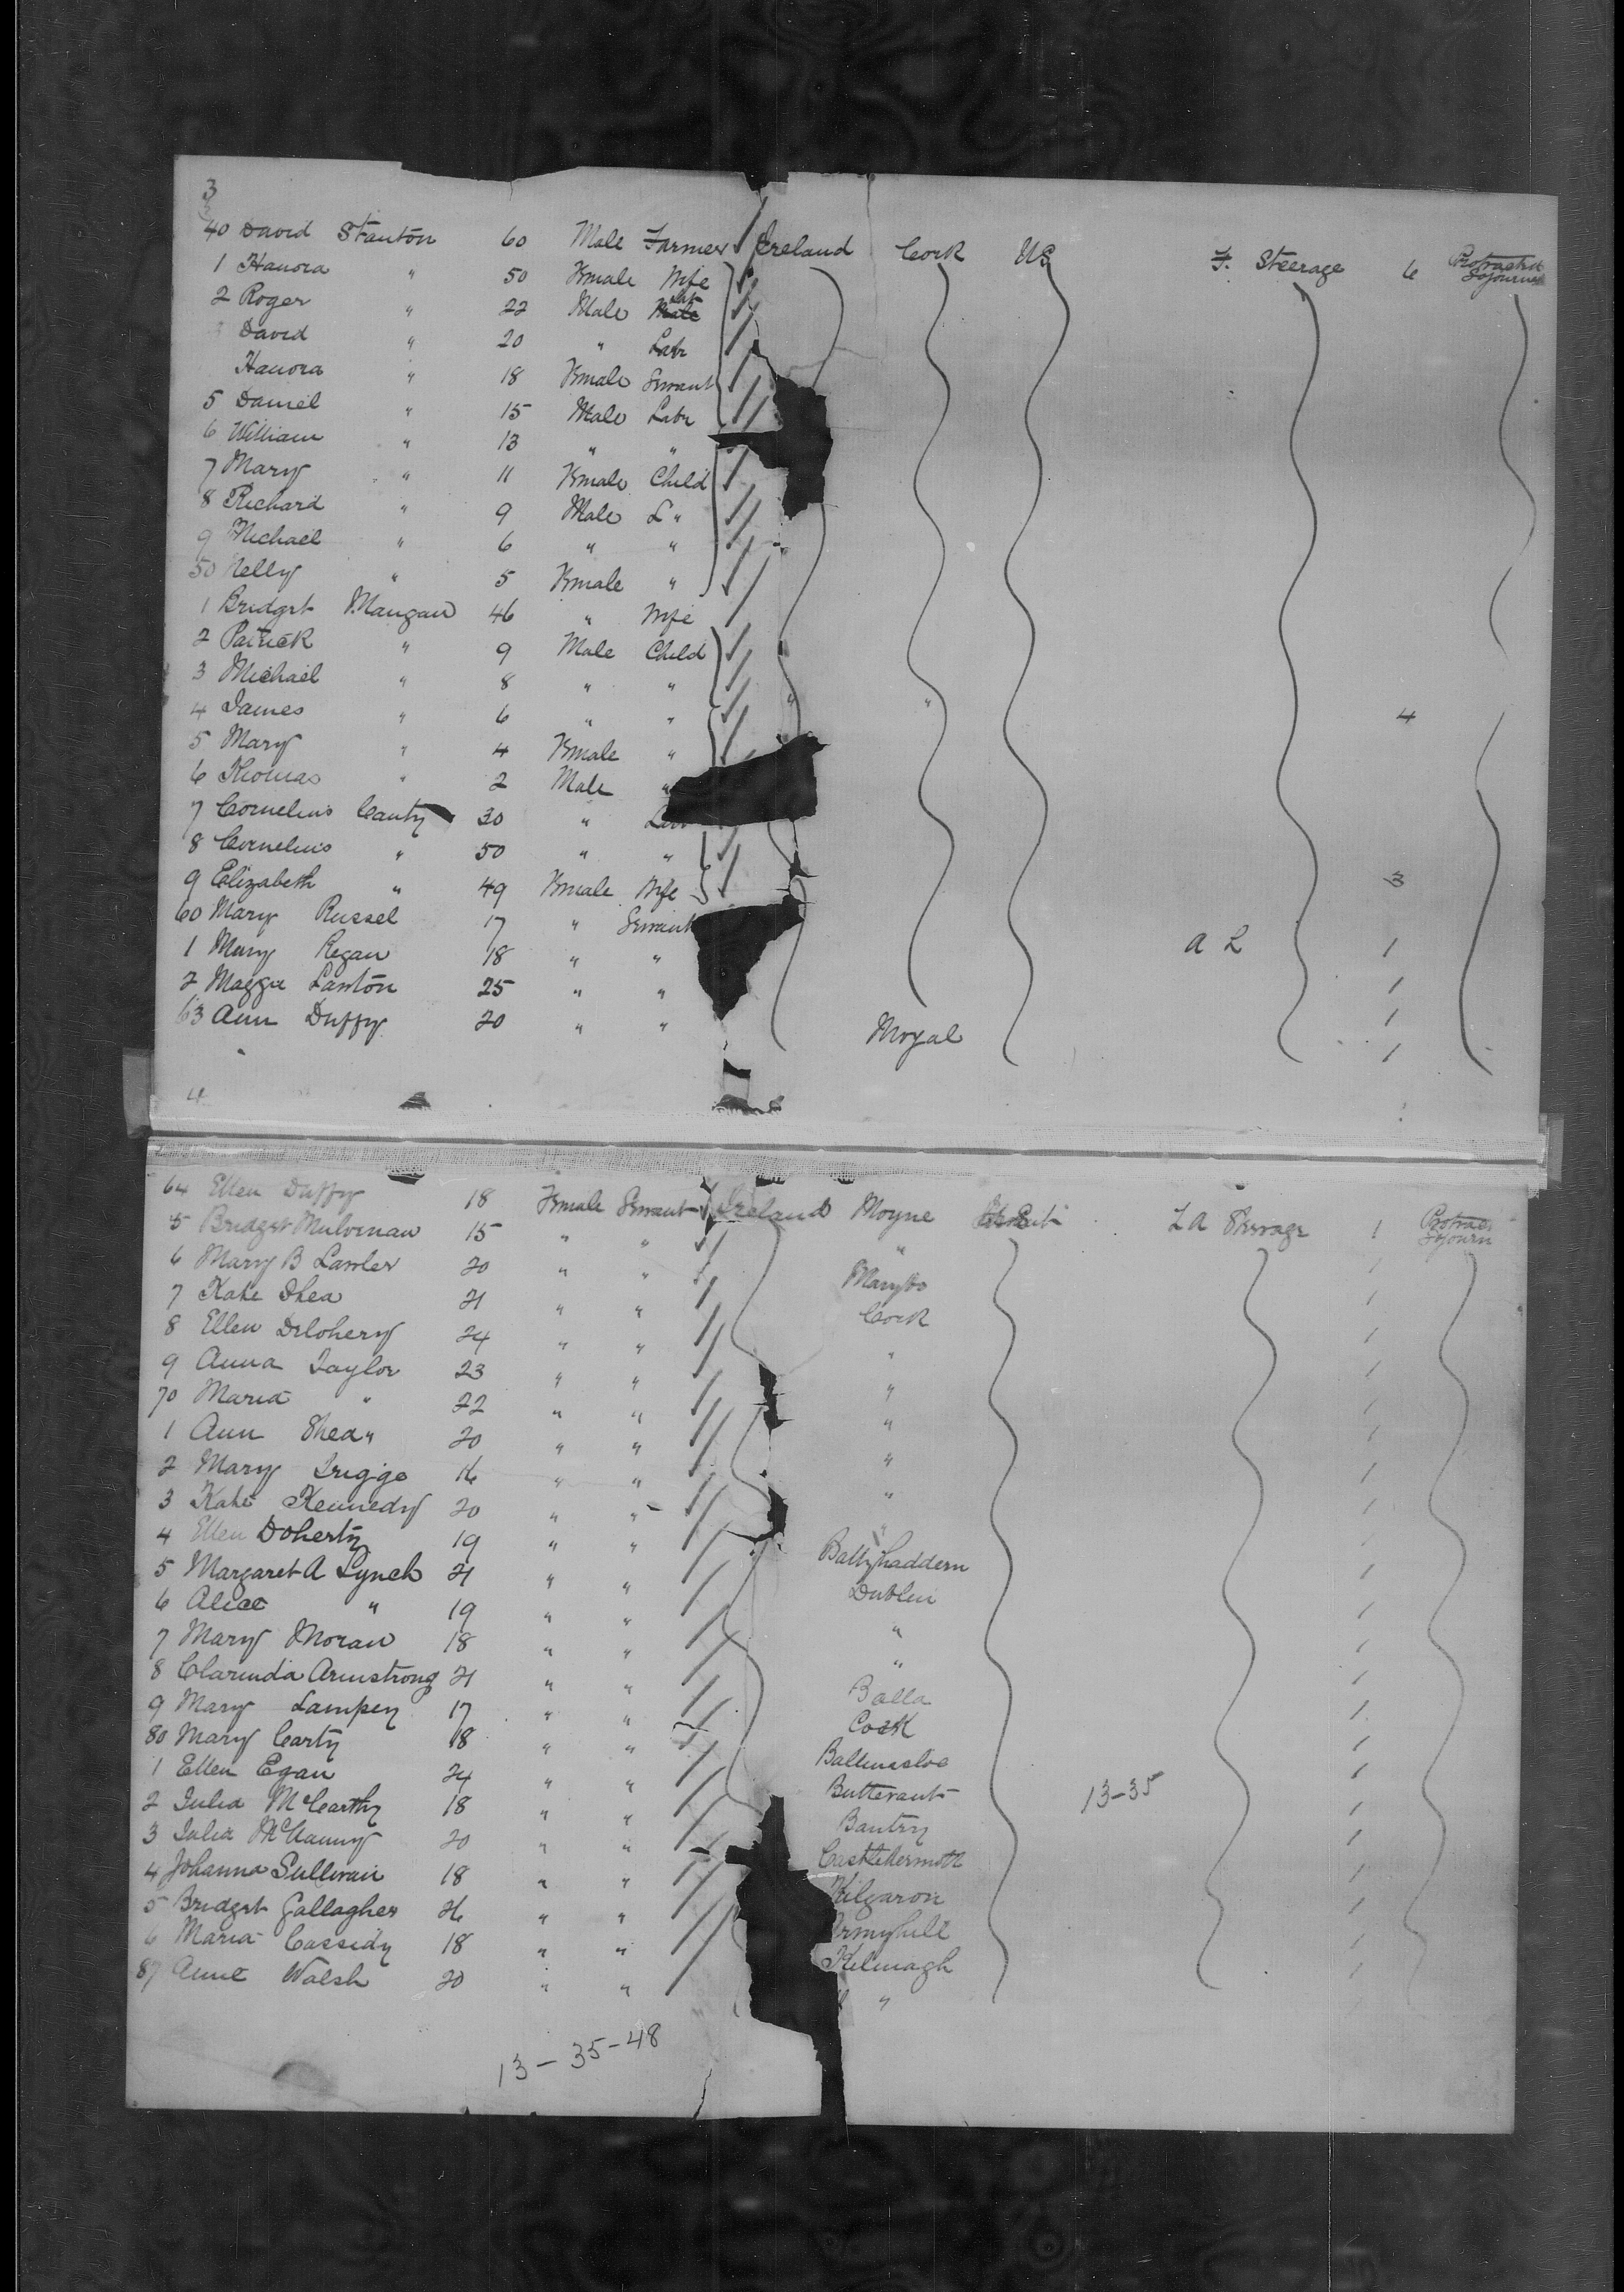 3
40 David Stanton 60 Male Farmer Ireland Cork US F. Steerage 6 Protracted Sojourn
1 Hanora " 50 Female Wife
2 Roger " 22 Male Lab
David " 20 " Labr
Hanora " 18 Female Servant
5 Daniel " 15 Male Labr
6 William " 13 " "
7 Mary " 11 Female Child
8 Richard " 9 Male "
9 Michael " 6 " "
50 Nelly " 5 Female "
1 Bridget Mangan 46 " Wife
2 Patrick " 9 Male Child
3 Michael " 8 " "
4 James " 6 " " " " 4
5 Mary " 4 Female "
6 Thomas " 2 Male "
7 Cornelius Canty 30 "
8 Cornelius " 50 " "
9 Elizabeth " 49 Female Wife 3
60 Mary Russel 17 " Servant
1 Mary Regan 18 " " A L 1
2 Maggie Lawton 25 " " 1
63 Ann Duffy 20 " " Moyal 1
4
64 Ellen Duffy 18 Female Servant Ireland Moyne L A Steerage 1 Protrac Sojourn
5 Bridget Mulvenan 15 " " " 1
6 Mary B Lawler 20 " " Marybo 1
7 Kate Shea 21 " " Cork 1
8 Ellen Delohery 24 " " " 1
9 Anna Taylor 23 " " " 1
70 Maria " 22 " " " 1
1 Ann Shea " 20 " " " 1
2 Mary Triggs 16 " " " 1
3 Kate Kennedy 20 " " " 1
4 Ellen Doherty 19 " " Ballyhaddern 1
5 Margaret A Lynch 21 " " Dublin 1
6 Alice " 19 " " " 1
7 Mary Moran 18 " " " 1
8 Clarinda Armstrong 21 " " Balla 1
9 Mary Lampey 17 " " Cork 1
80 Mary Carty 18 " " Ballinasloe 1
1 Ellen Egan 24 " " Buttevant 13-35 1
2 Julia McCarthy 18 " " Bantry 1
3 Julia 20 " " 1
4 Johanna Sullivan 18 " " Kilgarvin 1
5 Bridget Gallagher 26 " " 1
6 Maria Cassidy 18 " " Kilmagh 1
87 Anne Walsh 20 " " "
13-35-48